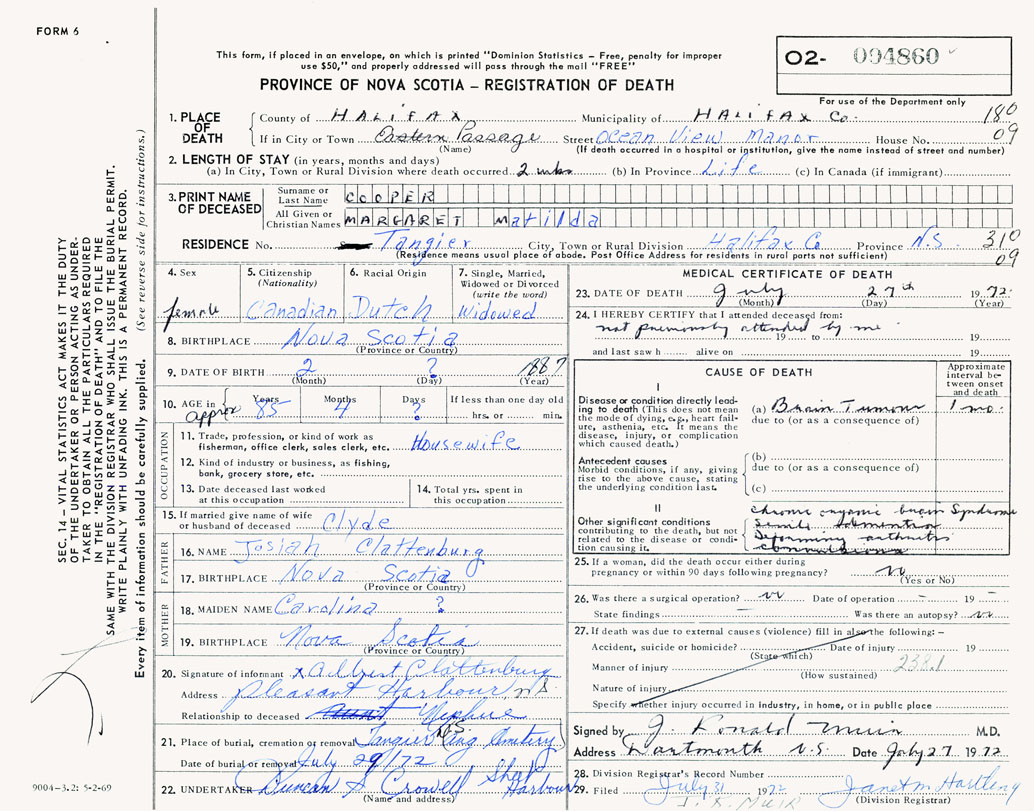 FORM 6
This form, if placed in an envelope, on which is printed "Dominion Statistics – Free, penalty for improper
use $50," and properly addressed will pass through the mail "FREE"
PROVINCE OF NOVA SCOTIA – REGISTRATION OF DEATH
O2- 094860
For use of the Department only
1. PLACE OF DEATH
County of HALIFAX Municipality of HALIFAX Co. 180
If in City or Town Eastern Passage Street Ocean View Manor House No. 09
(Name) (If death occurred in a hospital or institution, give the name instead of street and number)
2. LENGTH OF STAY (in years, months and days)
(a) In City, Town or Rural Division where death occurred 2 wks (b) In Province Life (c) In Canada (if immigrant)
3. PRINT NAME OF DECEASED
Surname or Last Name COOPER
All Given or Christian Names MARGARET Matilda
RESIDENCE No. Tangier City, Town or Rural Division Halifax Co Province N.S. 310
(Residence means usual place of abode. Post Office Address for residents in rural parts not sufficient) 09
4. Sex female
5. Citizenship (Nationality) Canadian
6. Racial Origin Dutch
7. Single, Married, Widowed or Divorced (write the word) Widowed
8. BIRTHPLACE Nova Scotia
(Province or Country)
9. DATE OF BIRTH 2 ? 1887
(Month) (Day) (Year)
10. AGE in approx Years 85 Months 4 Days ? If less than one day old
hrs. or min.
OCCUPATION
11. Trade, profession, or kind of work as fisherman, office clerk, sales clerk, etc. Housewife
12. Kind of industry or business, as fishing, bank, grocery store, etc.
13. Date deceased last worked at this occupation
14. Total yrs. spent in this occupation
15. If married give name of wife or husband of deceased Clyde
FATHER
16. NAME Josiah Clattenburg
17. BIRTHPLACE Nova Scotia
(Province or Country)
MOTHER
18. MAIDEN NAME Carolina ?
19. BIRTHPLACE Nova Scotia
(Province or Country)
20. Signature of informant x Albert Clattenburg
Address Pleasant Harbour N.S.
Relationship to deceased Aunt Nephue
21. Place of burial, cremation or removal Tangier Ang Cemetery N.S.
Date of burial or removal July 29/72
22. UNDERTAKER Duncan S. Crowell Sheet Harbour
(Name and address)
MEDICAL CERTIFICATE OF DEATH
23. DATE OF DEATH July 27th 1972
(Month) (Day) (Year)
24. I HEREBY CERTIFY that I attended deceased from:
not previously attended by me
19 to 19
and last saw h alive on 19
CAUSE OF DEATH
Approximate interval between onset and death
I
Disease or condition directly leading to death (This does not mean the mode of dying, e.g., heart failure, asthenia, etc. It means the disease, injury, or complication which caused death.)
(a) Brain Tumour 1 mo.
due to (or as a consequence of)
Antecedent causes
Morbid conditions, if any, giving rise to the above cause, stating the underlying condition last.
(b)
due to (or as a consequence of)
(c)
II
Other significant conditions contributing to the death, but not related to the disease or condition causing it.
chronic organic brain Syndrome
Senile dementia
Deforming arthritis
25. If a woman, did the death occur either during pregnancy or within 90 days following pregnancy? no
(Yes or No)
26. Was there a surgical operation? no Date of operation – 19 –
State findings – Was there an autopsy? no
27. If death was due to external causes (violence) fill in also the following: –
Accident, suicide or homicide? Date of injury 19
(State which)
Manner of injury 238.1
(How sustained)
Nature of injury
Specify whether injury occurred in industry, in home, or in public place
Signed by J. Ronald Muir M.D.
Address Dartmouth N.S. Date July 27 1972
28. Division Registrar's Record Number
29. Filed July 31 1972 Janet M Hartling
J. R. MUIR (Division Registrar)
SEC. 14 – VITAL STATISTICS ACT MAKES IT THE DUTY
OF THE UNDERTAKER OR PERSON ACTING AS UNDER-
TAKER TO OBTAIN ALL THE PARTICULARS REQUIRED
IN THE "REGISTRATION OF DEATH" AND TO FILE THE
SAME WITH THE DIVISION REGISTRAR WHO SHALL ISSUE THE BURIAL PERMIT.
WRITE PLAINLY WITH UNFADING INK. THIS IS A PERMANENT RECORD.
Every item of information should be carefully supplied. (See reverse side for instructions.)
9004-3.2: 5-2-69